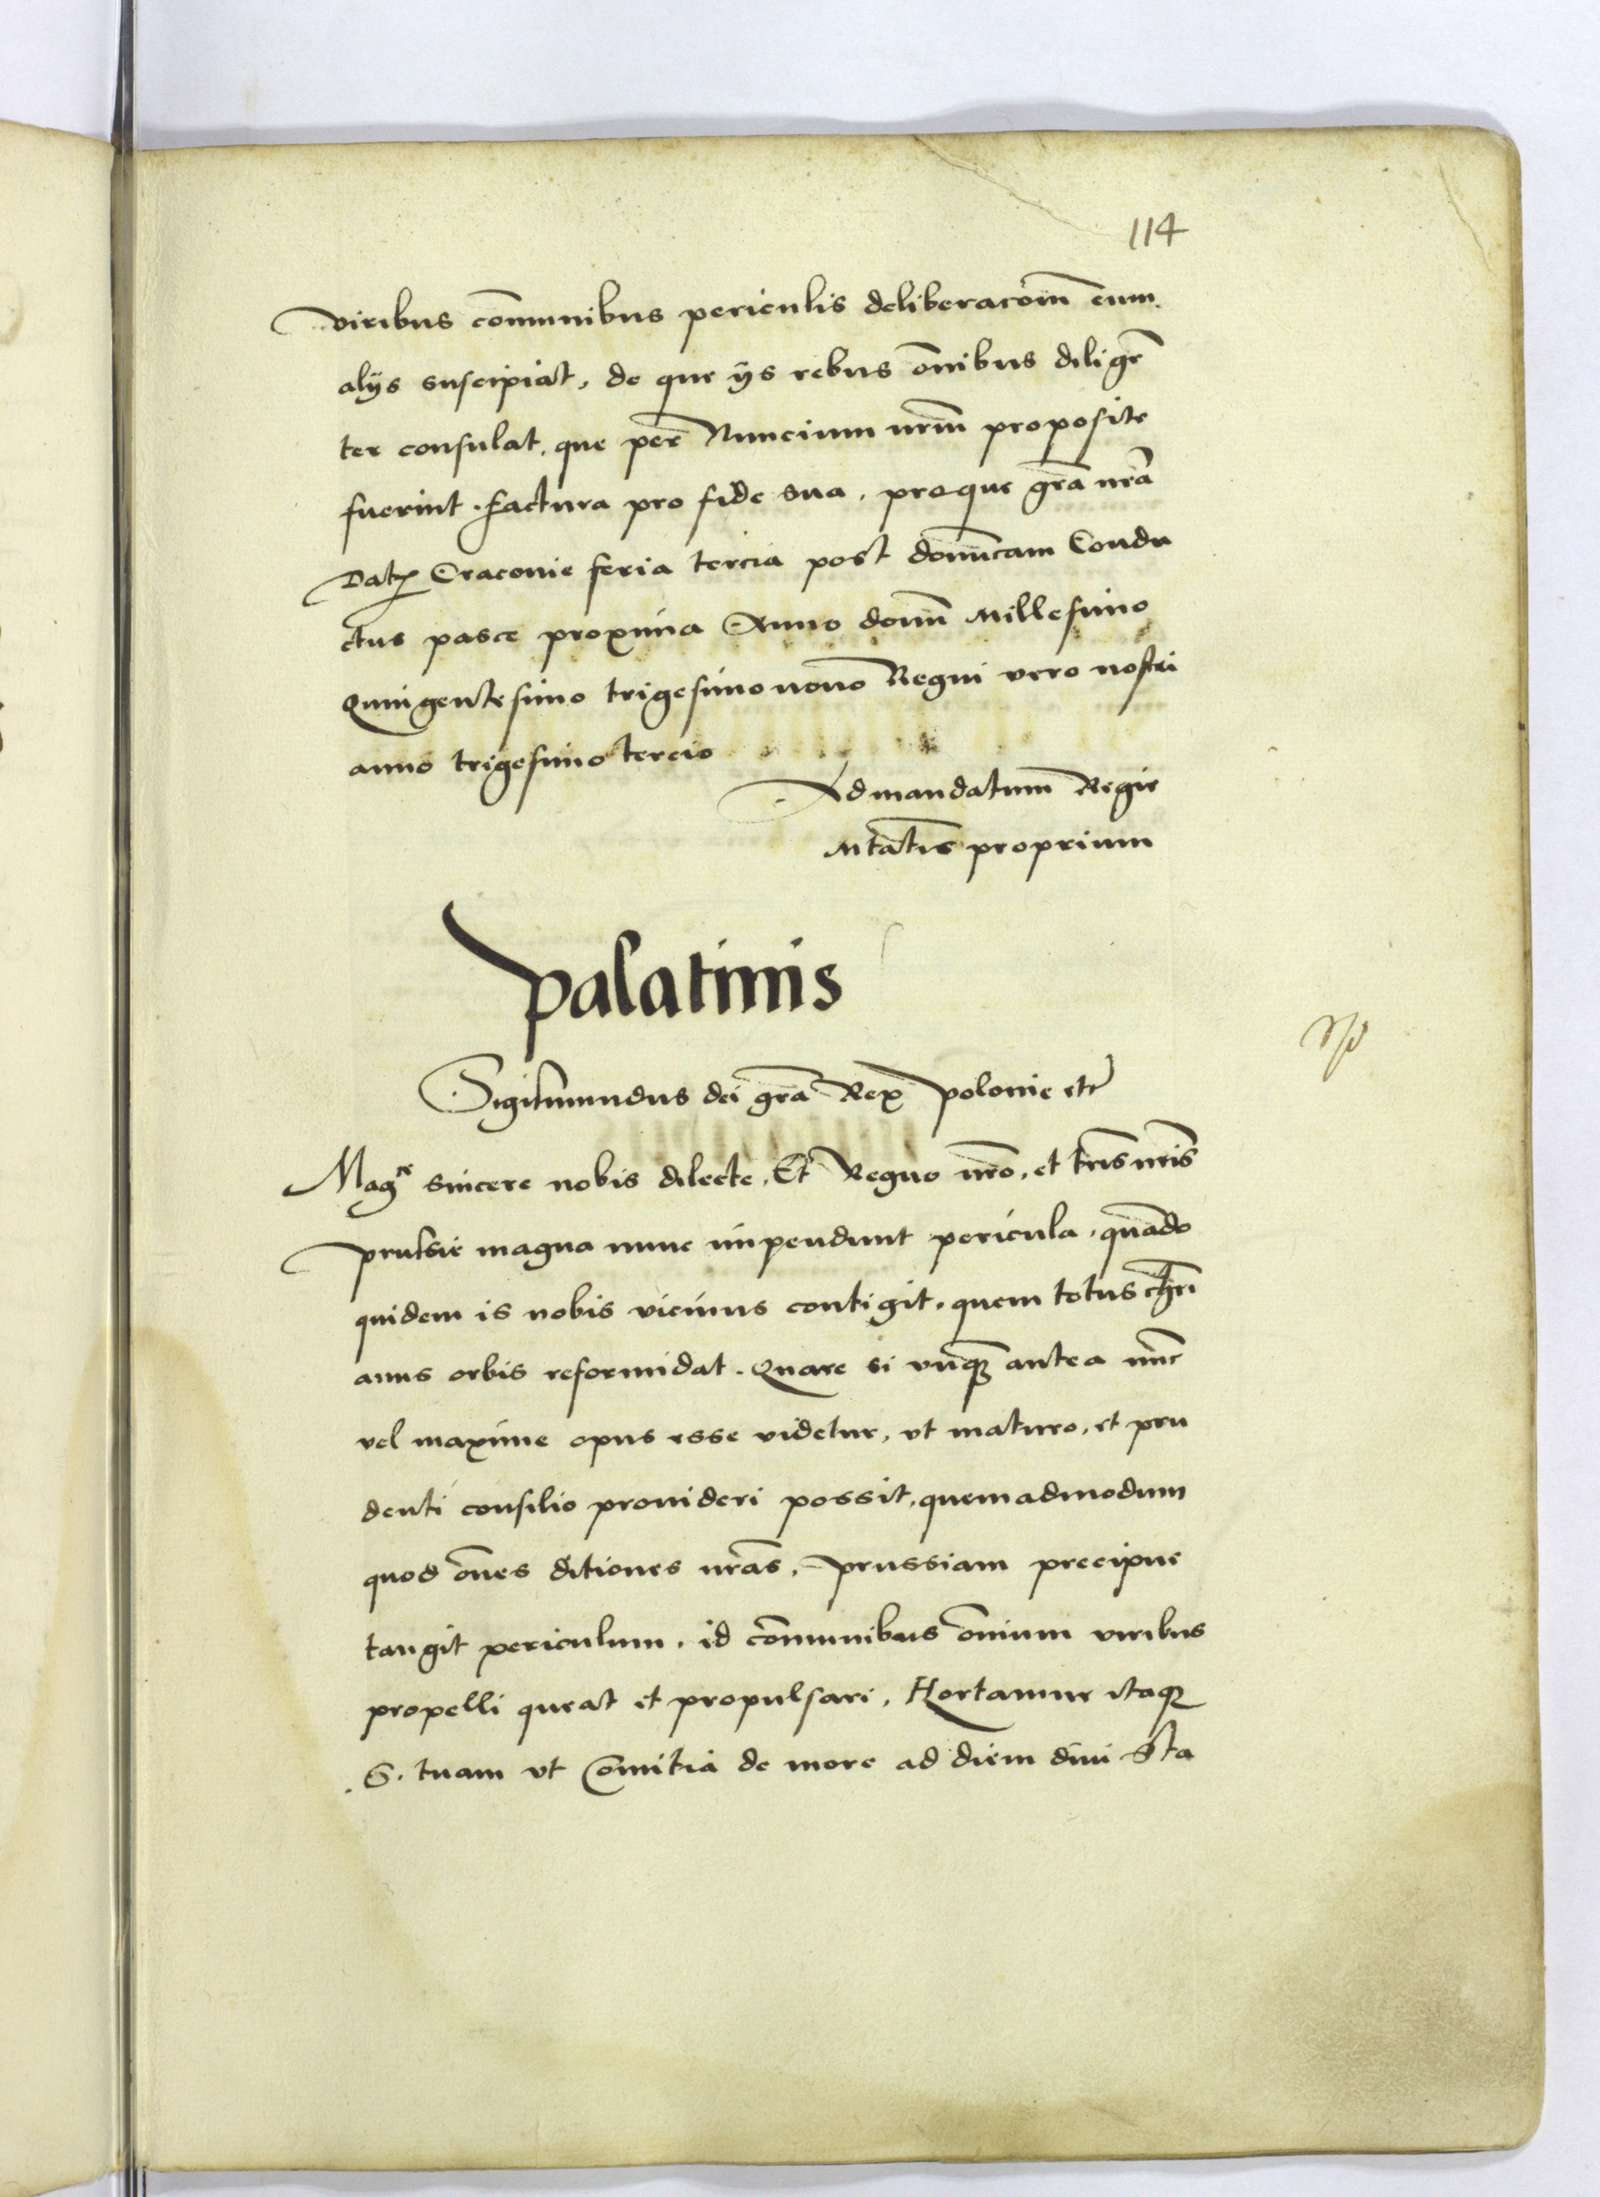 114
viribus cōmunibus periculis deliberacōm̄ cum
alijs suscipiat, de que ijs rebus oīnibus diligē
ter consulat, que per Nuncium nrm̄ proposite
fuerint. factura pro fide sua, proque grā nrā
Datꝫ Cracouie feria tercia post domīcam Condu
ctus pasce proxima Anno domī Millesimo
Quingentesimo trigesimo nono Regni vero nostri
anno trigesimo tercio
Ad mandatum Regie
Mtātis proprium
Palatinis
Sigismundus dei grā Rex Polonie etc
Magce sincere nobis dilecte, Et Regno nrō, et terrīs nrīs
Prussie magna nunc impendunt pericula, quādo
quidem is nobis vicinus contigit, quem totus chrī
anus orbis reformidat. Quare si vnqꝫ antea nūc
vel maxime opus esse videtur, vt maturo, et pru
denti consilio prouideri possit, quemadmodum
quod oēs ditiones nrās, Prussiam precipue
tangit periculum, id cōmunibus oīnium viribus
propelli queat et propulsari, Hortamur itaqꝫ
S. tuam vt Comitia de more ad diem diui Sta